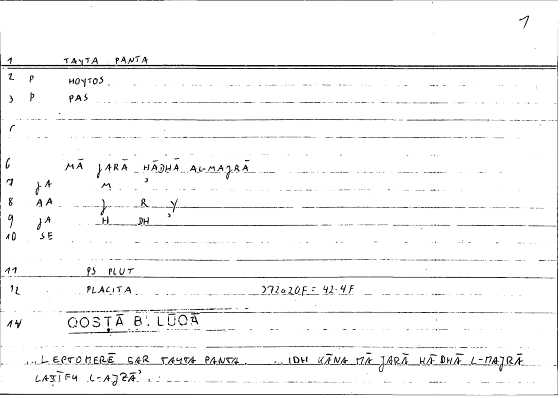 1
1 TAYTA PANTA
2 P HOYTOS
3 P PAS
5
6 MĀ JARĀ HĀDHĀ AL-MAJRĀ
7 JA M ʾ
8 AA J R Y
9 JA H DH ʾ
10 SE
11 PS PLUT
12 PLACITA 372a20F = 42.4F
14 QOSṬĀ B. LŪQĀ
...LEPTOMERĒ GAR TAYTA PANTA. ...IDH KĀNA MĀ JARĀ HĀDHĀ L-MAJRĀ
LAṬĪFU L-AJZĀʾ...